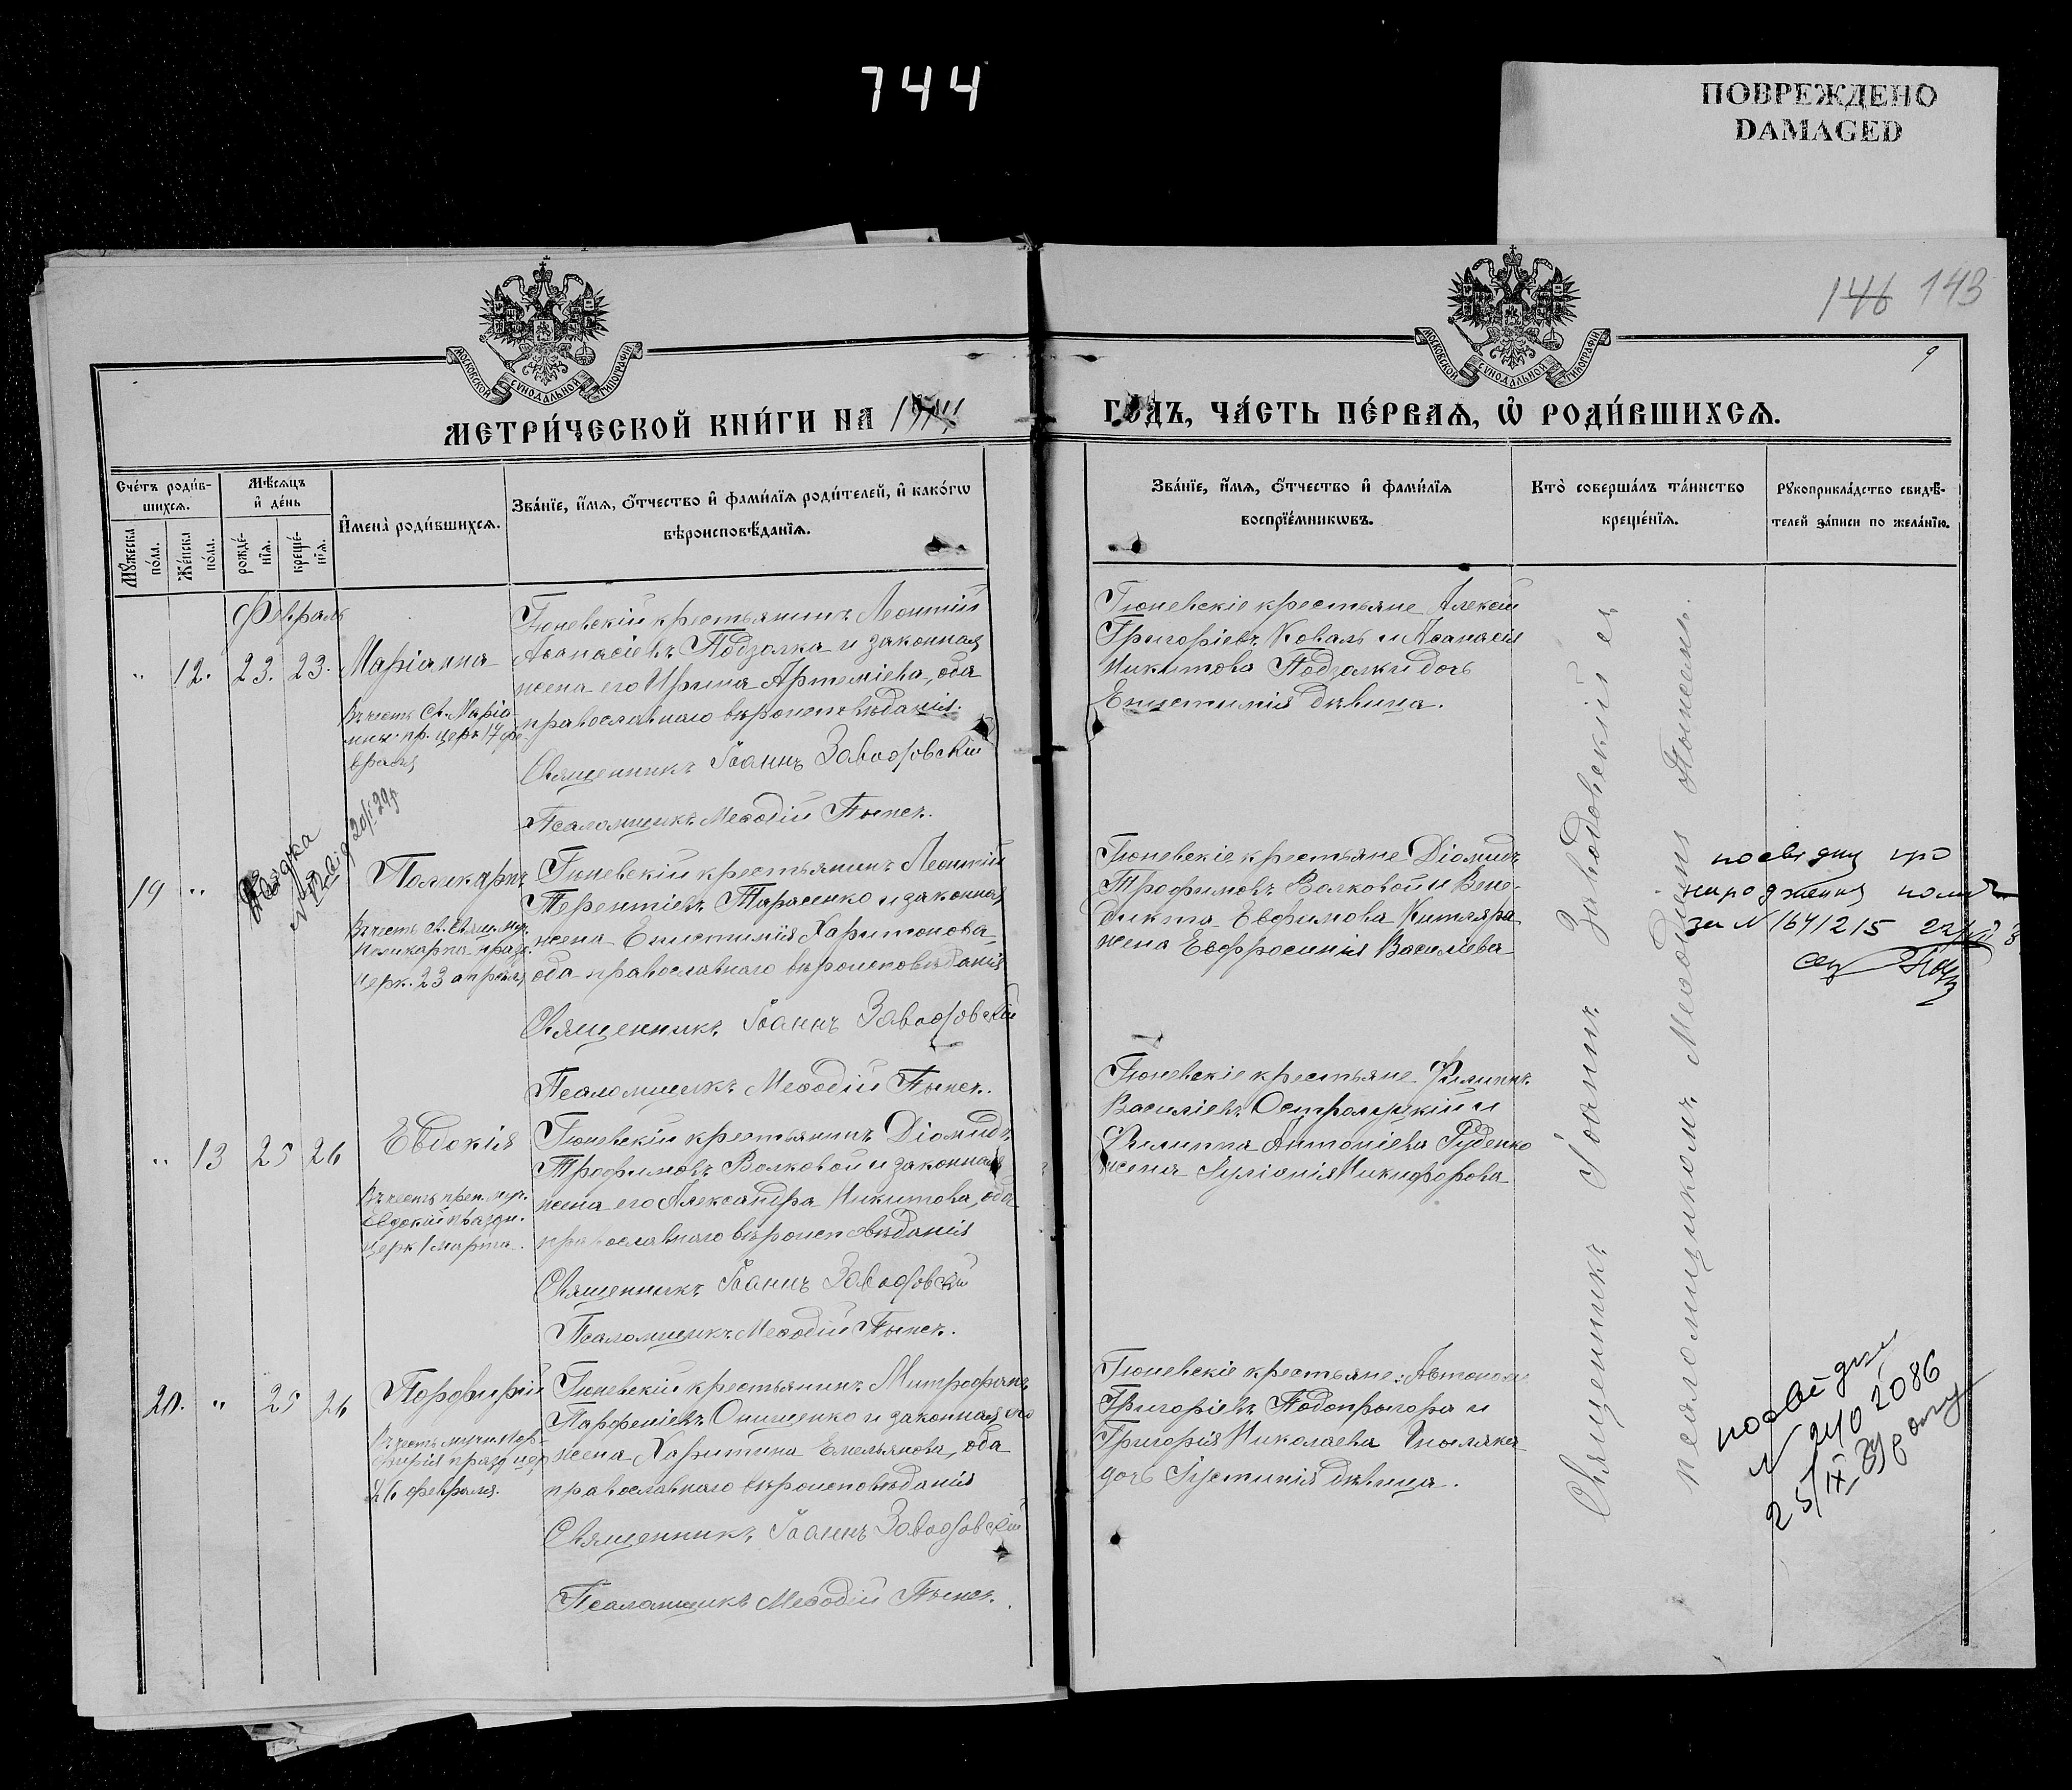 744
ПОВРЕЖДЕНО
DAMAGED
146 143
9
МОСКОВСКОЙ СѴНОДАЛЬНОЙ ТИПОГРАФІИ
МОСКОВСКОЙ СѴНОДАЛЬНОЙ ТИПОГРАФІИ
МЕТРИ́ЧЕСКОЙ КНИ́ГИ НА
ГОДЪ, ЧА́СТЬ ПЕ́РВАЯ, Ѽ РОДИ́ВШИХСЯ.
Сче́тъ роди́в-
шихся.
Мѣ́сяцъ
и҆ де́нь
Мꙋ́жеска
по́ла.
Же́нска
по́ла.
рожде́-
нїя.
креще́-
нїя.
И҆мена̀ роди́вшихся.
Зва́нїе, и҆́мя, ѻ҆́тчество и҆ фами́лїя роди́телей, и҆ како́гѡ
вѣроисповѣ́данїя.
Зва́нїе, и҆́мя, ѻ҆́тчество и҆ фами́лїя
воспрїе́мникѡвъ.
Кто̀ соверша́лъ та́инство
креще́нїя.
Рꙋкоприкла́дство свидѣ́-
телей за́писи по жела́нїю.
Февраль
" 12. 23. 23. Маріанна
Въ честь Св. Маріа-
мны пр. церк 17 фе-
враля
Гюневскій крестьянинъ Леонтій
Аѳанасіевъ Подзолка и законная
жена его Ирина Артеміева, оба
православнаго вѣроисповѣданія.
Священникъ Іоаннъ Заводовскій
Псаломщикъ Меѳодій Пынек.
Гюневскіе крестьяне Алексій
Григоріевъ Коваль и Аѳанасія
Никитова Подзолки дочь
Епистимія дѣвица.
19 " Поликарпъ
Въ честь Св. Свящ. муч.
Поликарпа празд.
церк. 23 апрѣля
Гюневскій крестьянинъ Леонтій
Терентіевъ Тарасенко и законная
жена Епистимія Харитонова,
оба православнаго вѣроисповѣданія
Священникъ Іоаннъ Заводовскій
Псаломщикъ Меѳодій Пынек.
Гюневскіе крестьяне Діомидъ
Трофимовъ Волковой и Вене-
дикта Евфимова
жена Евфросинія Василіева
народження
за N 1641215
" 13 25 26 Евдокія
Въ честь преп. муч.
Евдокіи праздн.
церк 1 марта.
Гюневскій крестьянинъ Діомидъ
Трофимовъ Волковой и законная
жена его Александра Никитова, оба
православнаго вѣроисповѣданія
Священникъ Іоаннъ Заводовскій
Псаломщикъ Меѳодій Пынек.
Гюневскіе крестьяне Филиппъ
Василіевъ и
Филиппа Антоніева Руденко
жена Іуліанія Никифорова
20. " 25 26 Порфирій
Въ честь муч. Пор-
фирія празд цер
26 февраля.
Гюневскій крестьянинъ Митрофанъ
Парфеніевъ Онищенко и законная его
жена Харитина Емельянова, оба
православнаго вѣроисповѣданія
Священникъ Іоаннъ Заводовскій
Псаломщикъ Меѳодій Пынек.
Гюневскіе крестьяне: Автономъ
Григоріевъ Подопригора и
Григорія Николаева
дочь Іустинія дѣвица.
Священникъ Іоаннъ Заводовскій съ
псаломщикомъ Меѳодіемъ